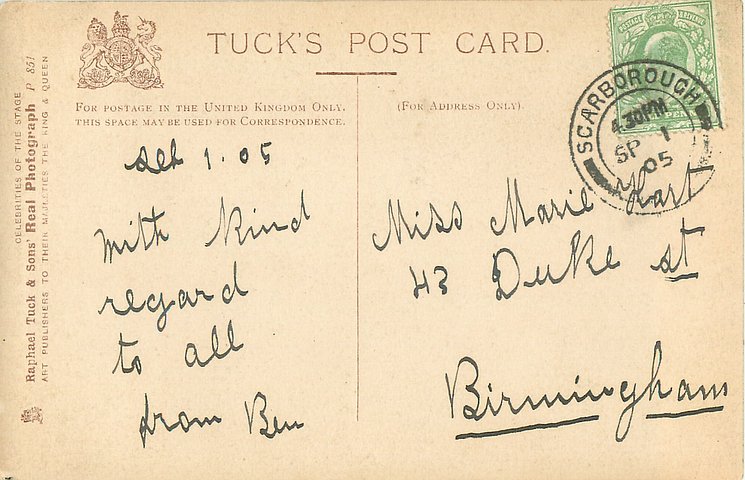 TUCK'S POST CARD.
FOR POSTAGE IN THE UNITED KINGDOM ONLY.
THIS SPACE MAY BE USED FOR CORRESPONDENCE.
(FOR ADDRESS ONLY).
CELEBRITIES OF THE STAGE
Raphael Tuck & Sons' Real Photograph P 851
ART PUBLISHERS TO THEIR MAJESTIES THE KING & QUEEN
POSTAGE REVENUE
SCARBOROUGH
4.30PM
SP 1
05
1.05
with kind
regard
to all
from Ben
Miss Marie Hart
43 Duke st
Birmingham